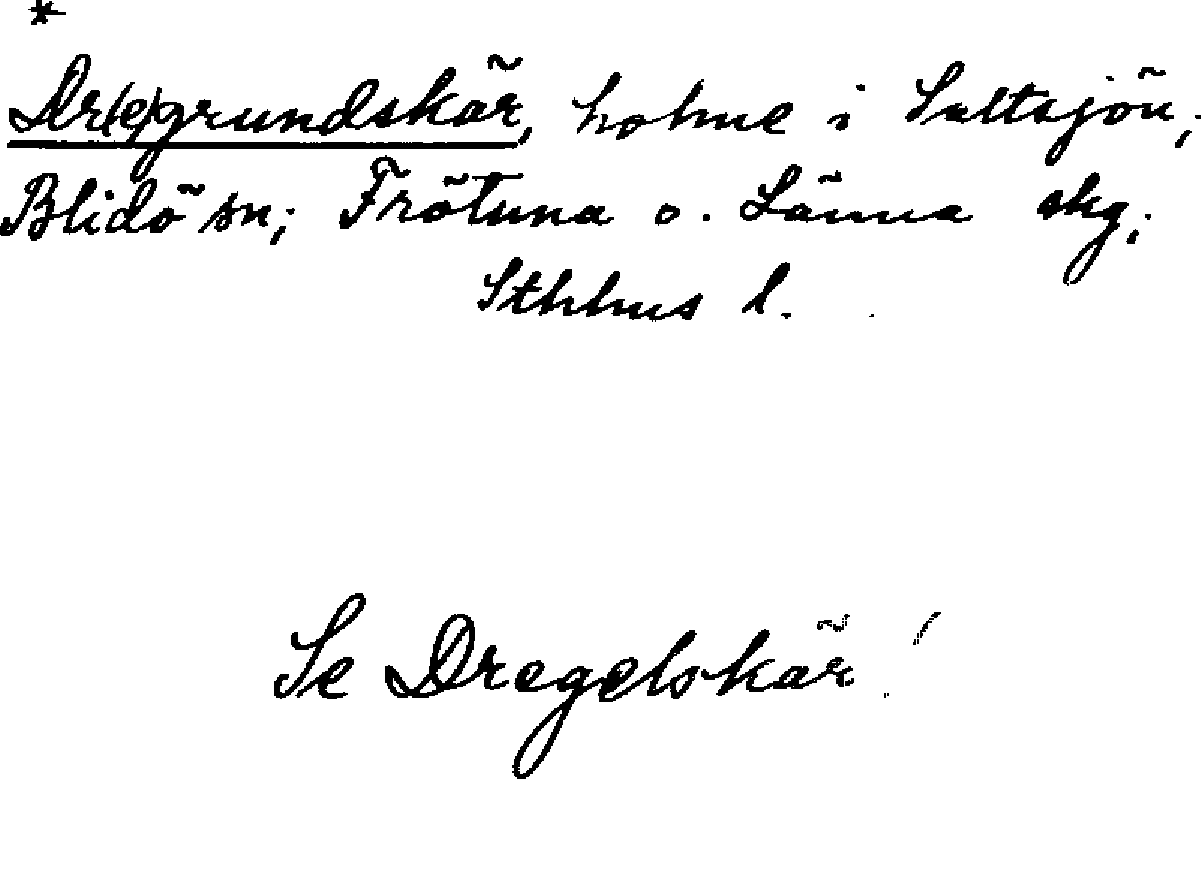 *
Dr(e)grundskär, holme i Saltsjön,
Blidö sn; Frötuna o. Länna skg;
Sthlms l.
Se Dregelskär!